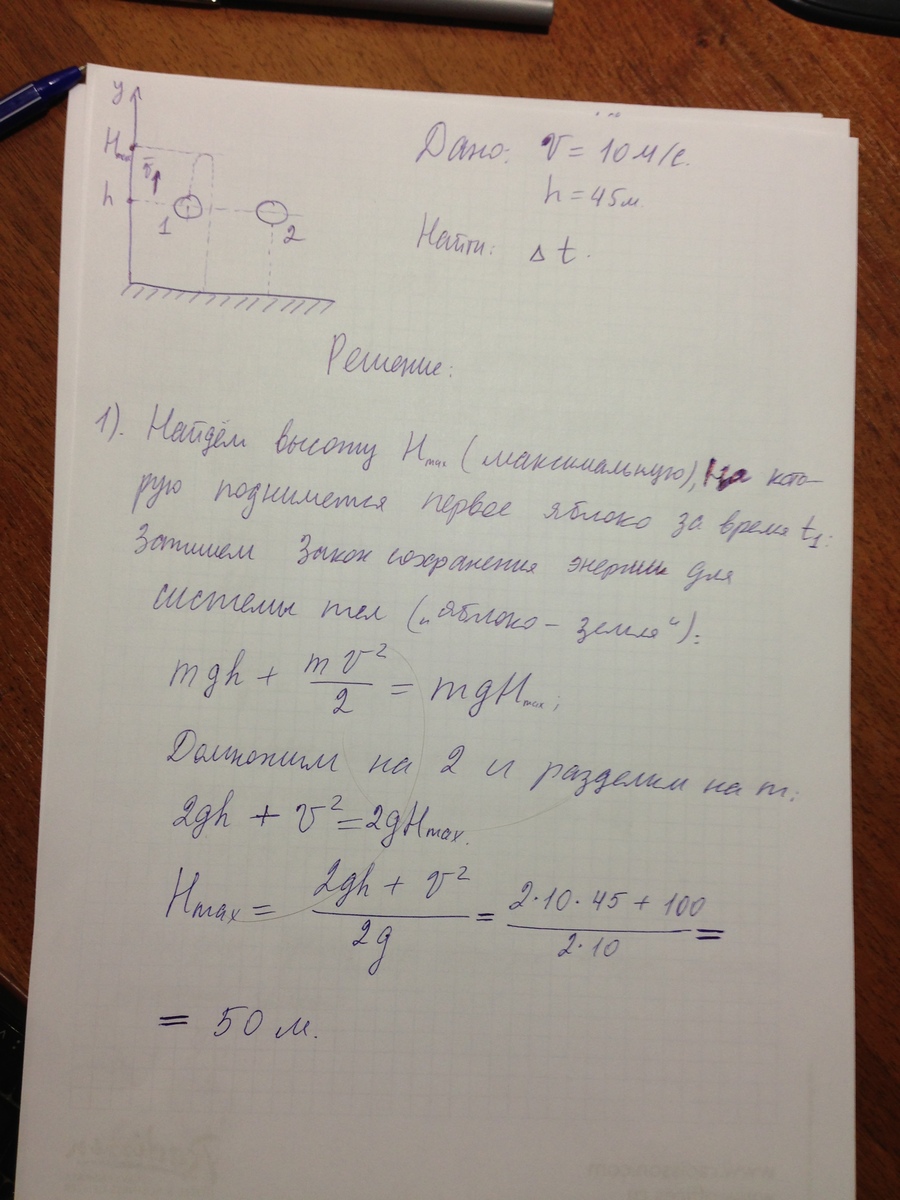 y
Hmax
v̄
h
1
2
Дано: v = 10 м/с.
h = 45 м.
Найти: Δt.
Решение:
1). Найдём высоту Hmax (максимальную), на кото-
рую поднимется первое яблоко за время t1:
Запишем Закон сохранения энергии для
системы тел („яблоко – земля“):
mgh + mv²/2 = mgHmax;
Домножим на 2 и разделим на m:
2gh + v² = 2gHmax.
Hmax = (2gh + v²)/2g = (2·10·45 + 100)/2·10 =
= 50 м.